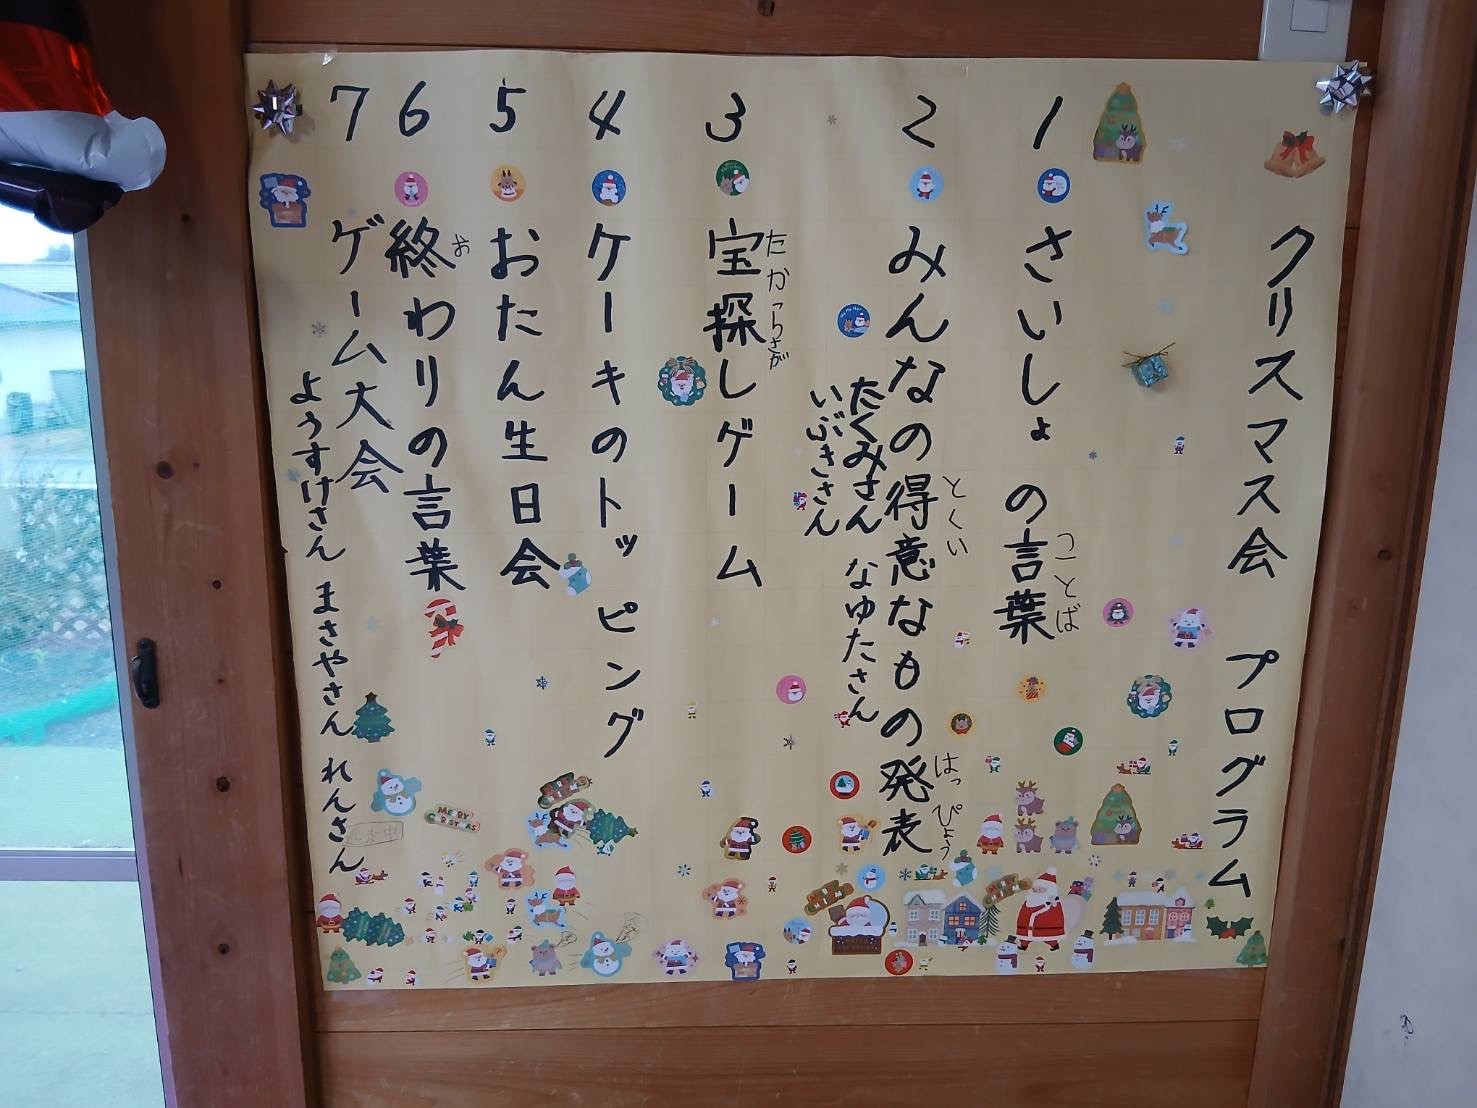 クリスマス会 プログラム
1 さいしょの言葉
ことば
2 みんなの得意なものの発表
とくい
はっぴょう
たくみさん なゆたさん
いぶきさん
3 宝探しゲーム
たからさが
4 ケーキのトッピング
5 おたん生日会
6 終わりの言葉
お
7 ゲーム大会
ようすけさん まさやさん れんさん
逃走中
MERRY CHRISTMAS